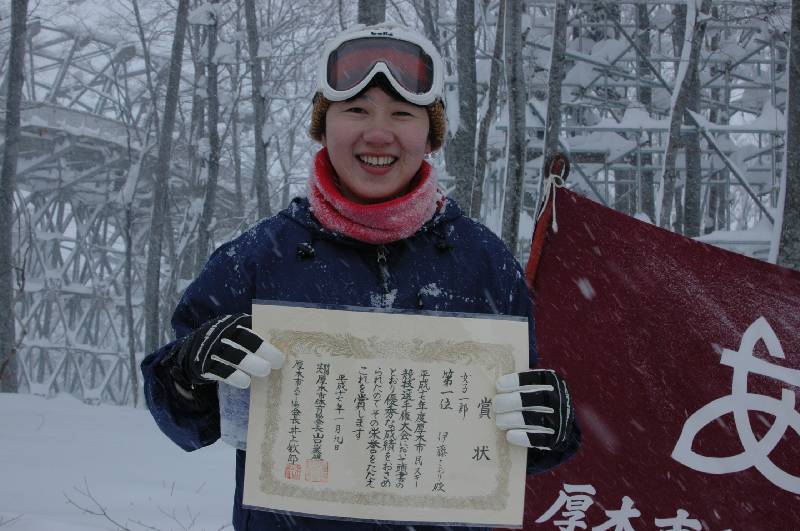 賞状
女子一部
第一位　伊藤
殿
平成十七年度厚木市民スキー
競技選手権大会において頭書の
とおり優秀な成績をおさめ
られたのでその栄誉をたたえ
これを賞します
平成十七年一月九日
厚木市体育協会長
厚木市スキー協会長 井上敏郎
厚木市